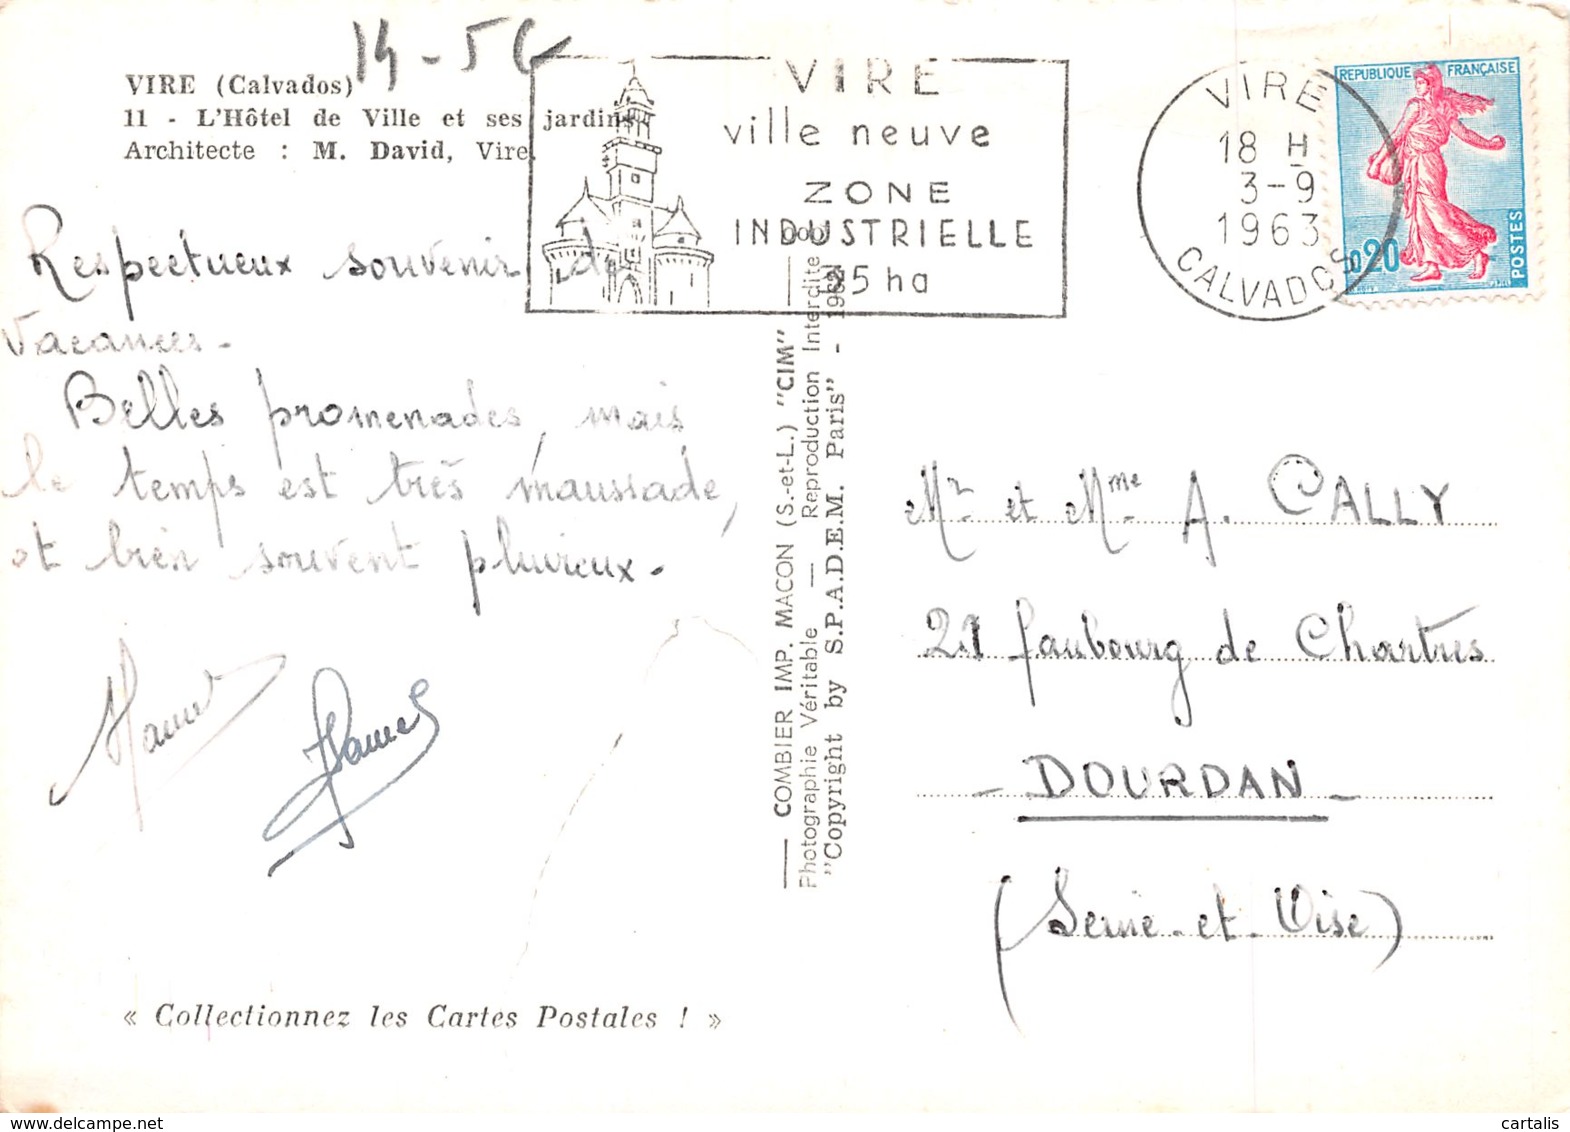 14-56
VIRE (Calvados)
11 - L'Hôtel de Ville et ses jardins.
Architecte : M. David, Vire.
VIRE
ville neuve
ZONE
INDUSTRIELLE
25 ha
VIRE
18 H
3-9
1963
CALVADOS
REPUBLIQUE FRANÇAISE
0,20
POSTES
Respectueux souvenir de
vacances.
Belles promenades, mais
le temps est très maussade,
et bien souvent pluvieux.
COMBIER IMP. MACON (S.-et-L.) "CIM"
Photographie Véritable — Reproduction Interdite
"Copyright by S.P.A.D.E.M. Paris" - 1962
Mr et Mme A. CALLY
21 faubourg de Chartres
- DOURDAN -
(Seine-et-Oise)
« Collectionnez les Cartes Postales ! »
www.delcampe.net
cartalis